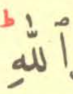 ٱللَّهِؕ